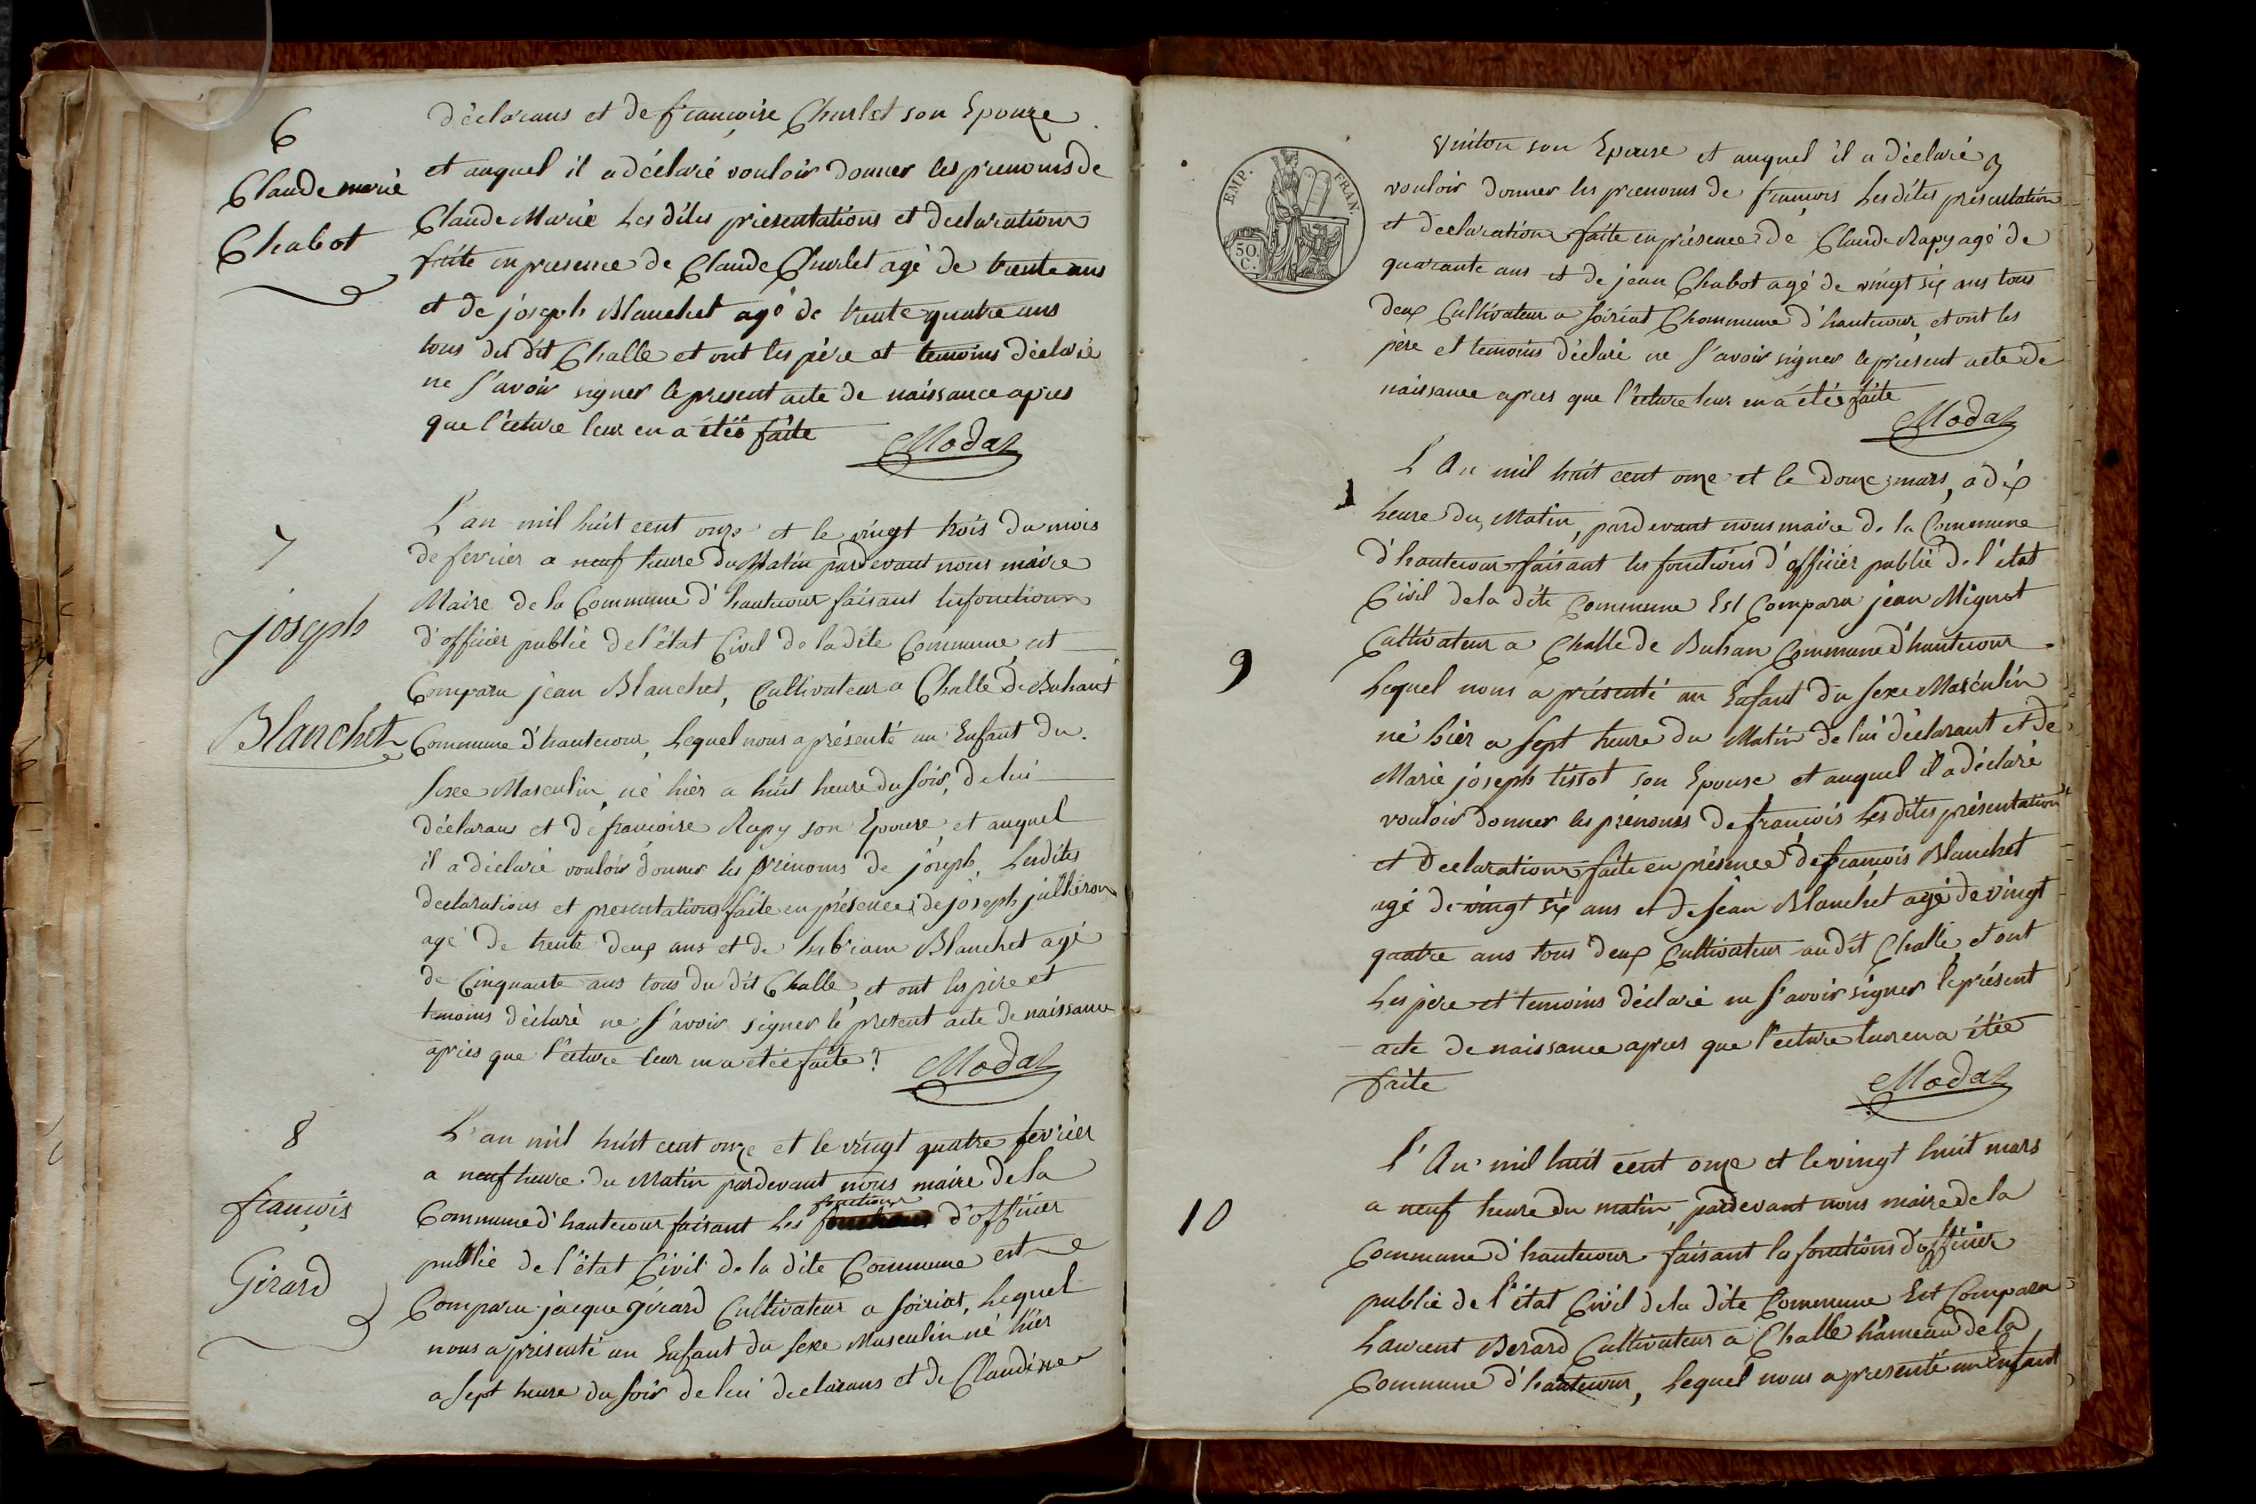 6
Claude marie
Chabot
déclarans et de françoise Churlet son Epouze
et auquel il a déclaré vouloir donner les prenoms de
Claude Marie Les dites présentations et declarations
faite en presence de Claude Churlet agé de trente ans
et de joseph Blanchet agé de trente quatre ans
tous du dit Challe et ont les père et temoins déclaré
ne s'avoir signer le present acte de naissance apres
que l'ecture leur en a étéé faite
Modas
7
joseph
Blanchet
L'an mil huit cent onze et le vingt trois du mois
de fevrier a neuf heure du Matin pardevant nous maire
Maire de la Commune d'hautecour faisant les fonctions
d'officier public de l'état Civil de la dite Commune est
Comparu jean Blanchet, Cultivateur a Challe de Buhant
Commune d'hautecour, Lequel nous a présenté un Enfant du
Sexe Masculin, né hier a huit heure du soir, de lui
déclarans et de francoise Rapy son Epouse et auquel
il a déclaré vouloir donner les prénoms de joseph, Lesdites
declarations et presentations faite en présence de joseph
agé de trente deux ans et de Blanchet agé
de Cinquante ans tous du dit Challe, et ont les père et
temoins déclaré ne s'avoir signer le present acte de naissance
apries que l'ecture leur en a étéé faite
Modas
8
françois
Girard
L'an mil huit cent onze et le vingt quatre fevrier
a neuf heure du Matin pardevant nous maire de la
fonctions
Commune d'hautecour faisant Les d'officier
public de l'état Civil de la dite Commune est
Comparu jacque Girard Cultivateur a Soiriat, Lequel
nous a présenté un Enfant du Sexe Masculin né hier
a Sept heure du Soir de lui declarans et de Claudine
EMP. FRAN.
50 C.
son Epouse et auquel il a déclaré
vouloir donner les prenoms de francois Les dites présentation
et declarations faite en présence de Claude Rapy agé de
quarante ans et de jean Chabot agé de vingt six ans tous
deux Cultivateur a Soiriat Chommune d'hautecour, et ont les
père et temoins déclaré ne s'avoir signer le present acte de
naissance apres que l'ecture leur en a étéé faite
Modas
9
L'An mil huit cent onze et le douze mars, a dix
heure du Matin, pardevant nous maire de la Commune
d'hautecour faisant les fonctions d'officier public de l'état
Civil de la dite Commune Est Comparu jean Mignot
Cultivateur a Challe de Buhan Commune d'hautecour
Lequel nous a présenté un Enfant du Sexe Masculin
né hier a Sept heure du Matin de lui déclarant et de
Marie joseph tissot son Epouse et auquel il a déclaré
vouloir donner les prénoms de francois Les dites présentation
et declarations faite en présence de francois Blanchet
agé de vingt six ans et de Jean Blanchet agé de vingt
quatre ans tous deux Cultivateur audit Challe, et ont
Les père et temoins déclaré ne s'avoir signer le présent
acte de naissance apres que l'ecture leur en a étée
faite
Modas
10
L'An mil huit cent onze et le vingt huit mars
a neuf heure du matin, pardevant nous maire de la
Commune d'hautecour faisant les fonctions d'officier
public de l'état Civil de la dite Commune Est Comparu
Laurent Berard Cultivateur a Challe hameau de la
Commune d'hautecour, Lequel nous a presenté un Enfant